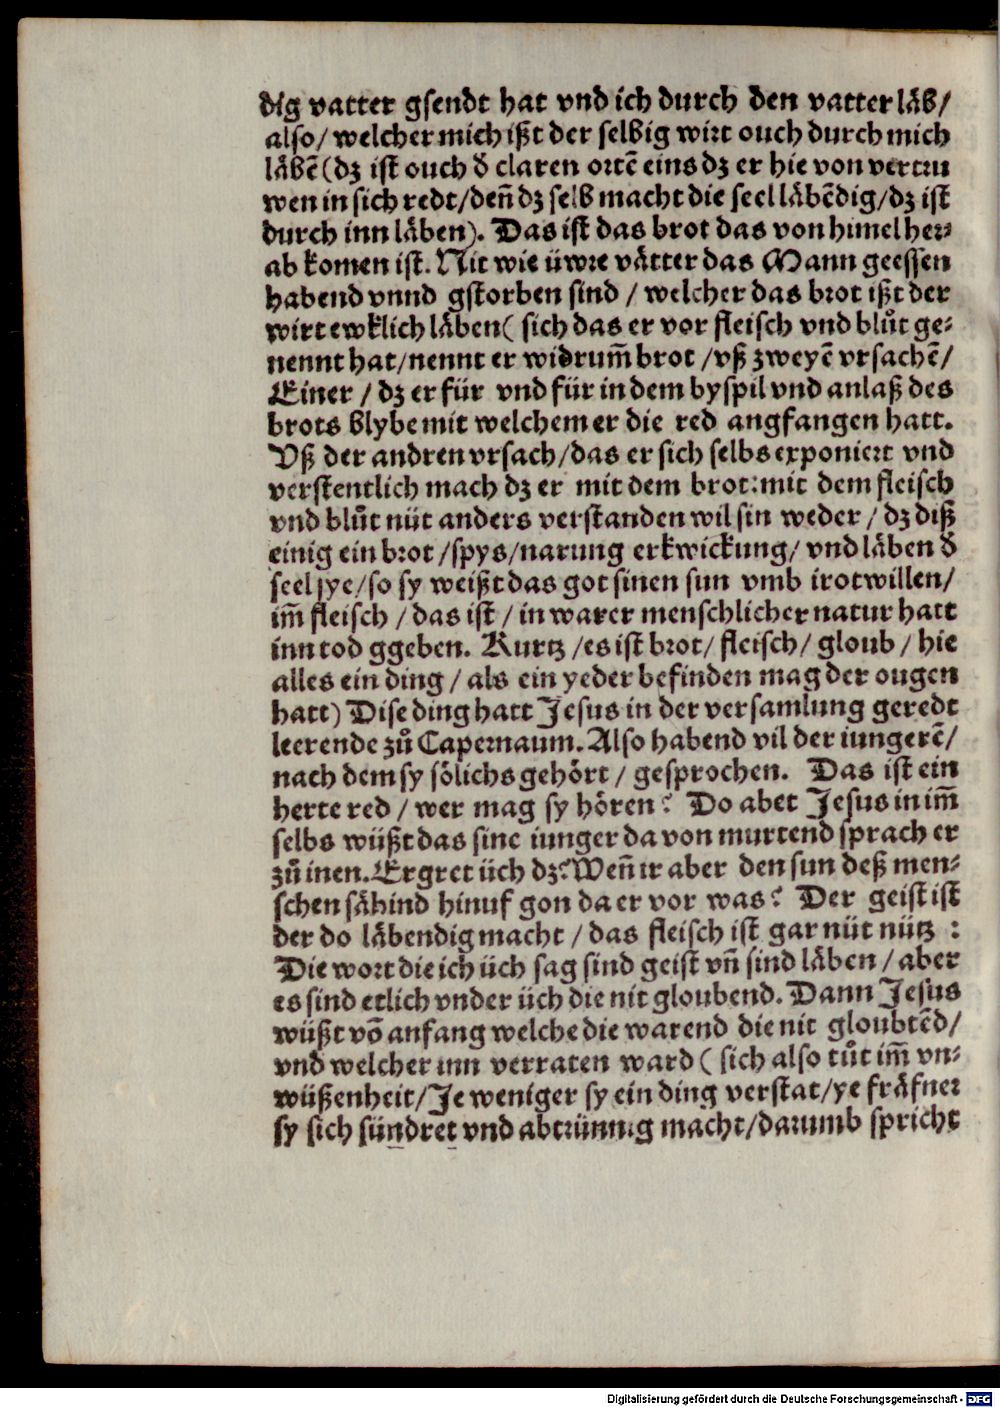 dig vatter gsendt hat vnd ich durch den vatter läb/
also/ welcher mich ißt der selbig wirt ouch durch mich
läbẽ (dz ist ouch d̕ claren ortẽ eins dz er hie von vertru
wen in sich redt/ deñ dz selb macht die seel läbẽdig/ dz ist
durch inn läben). Das ist das brot das von himel her⸗
ab komen ist. Nit wie üwre vätter das Mann geessen
habend vnnd gstorben sind / welcher das brot ißt der
wirt ewklich läben ( sich das er vor fleisch vnd blůt ge⸗
nennt hat/ nennt er widrum̃ brot / vß zweyẽ vrsachẽ/
Einer / dz er für vnd für in dem byspil vnd anlaß des
brots blybe mit welchem er die red angfangen hatt.
Vß der andren vrsach/ das er sich selbs exponiert vnd
verstentlich mach dz er mit dem brot: mit dem fleisch
vnd blůt nüt anders verstanden wil sin weder / dz diß
einig ein brot / spys/ narung erkwickung/ vnd läben d̕
seel sye/ so sy weißt das got sinen sun vmb irotwillen/
im̃ fleisch / das ist / in warer menschlicher natur hatt
inn tod ggeben. Kurtz / es ist brot/ fleisch/ gloub / hie
alles ein ding / als ein yeder befinden mag der ougen
hatt) Dise ding hatt Jesus in der versamlung geredt
leerende zů Capernaum. Also habend vil der iungerẽ/
nach dem sy sölichs gehört / gesprochen. Das ist ein
herte red / wer mag sy hören? Do abet Jesus in im̃
selbs wüßt das sine iunger da von murtend sprach er
zů inen. Ergret üch dz? Weñ ir aber den sun deß men⸗
schen sähind hinuf gon da er vor was? Der geist ist
der do läbendig macht / das fleisch ist gar nüt nütz :
Die wort die ich üch sag sind geist vñ sind läben / aber
es sind etlich vnder üch die nit gloubend. Dann Jesus
wüßt võ anfang welche die warend die nit gloubtẽd/
vnd welcher inn verraten ward ( sich also tůt im̃ vn⸗
wüßenheit/ Je weniger sy ein ding verstat/ ye fräfner
sy sich sündret vnd abtrünnig macht/ darumb spricht
Digitalisierung gefördert durch die Deutsche Forschungsgemeinschaft - DFG